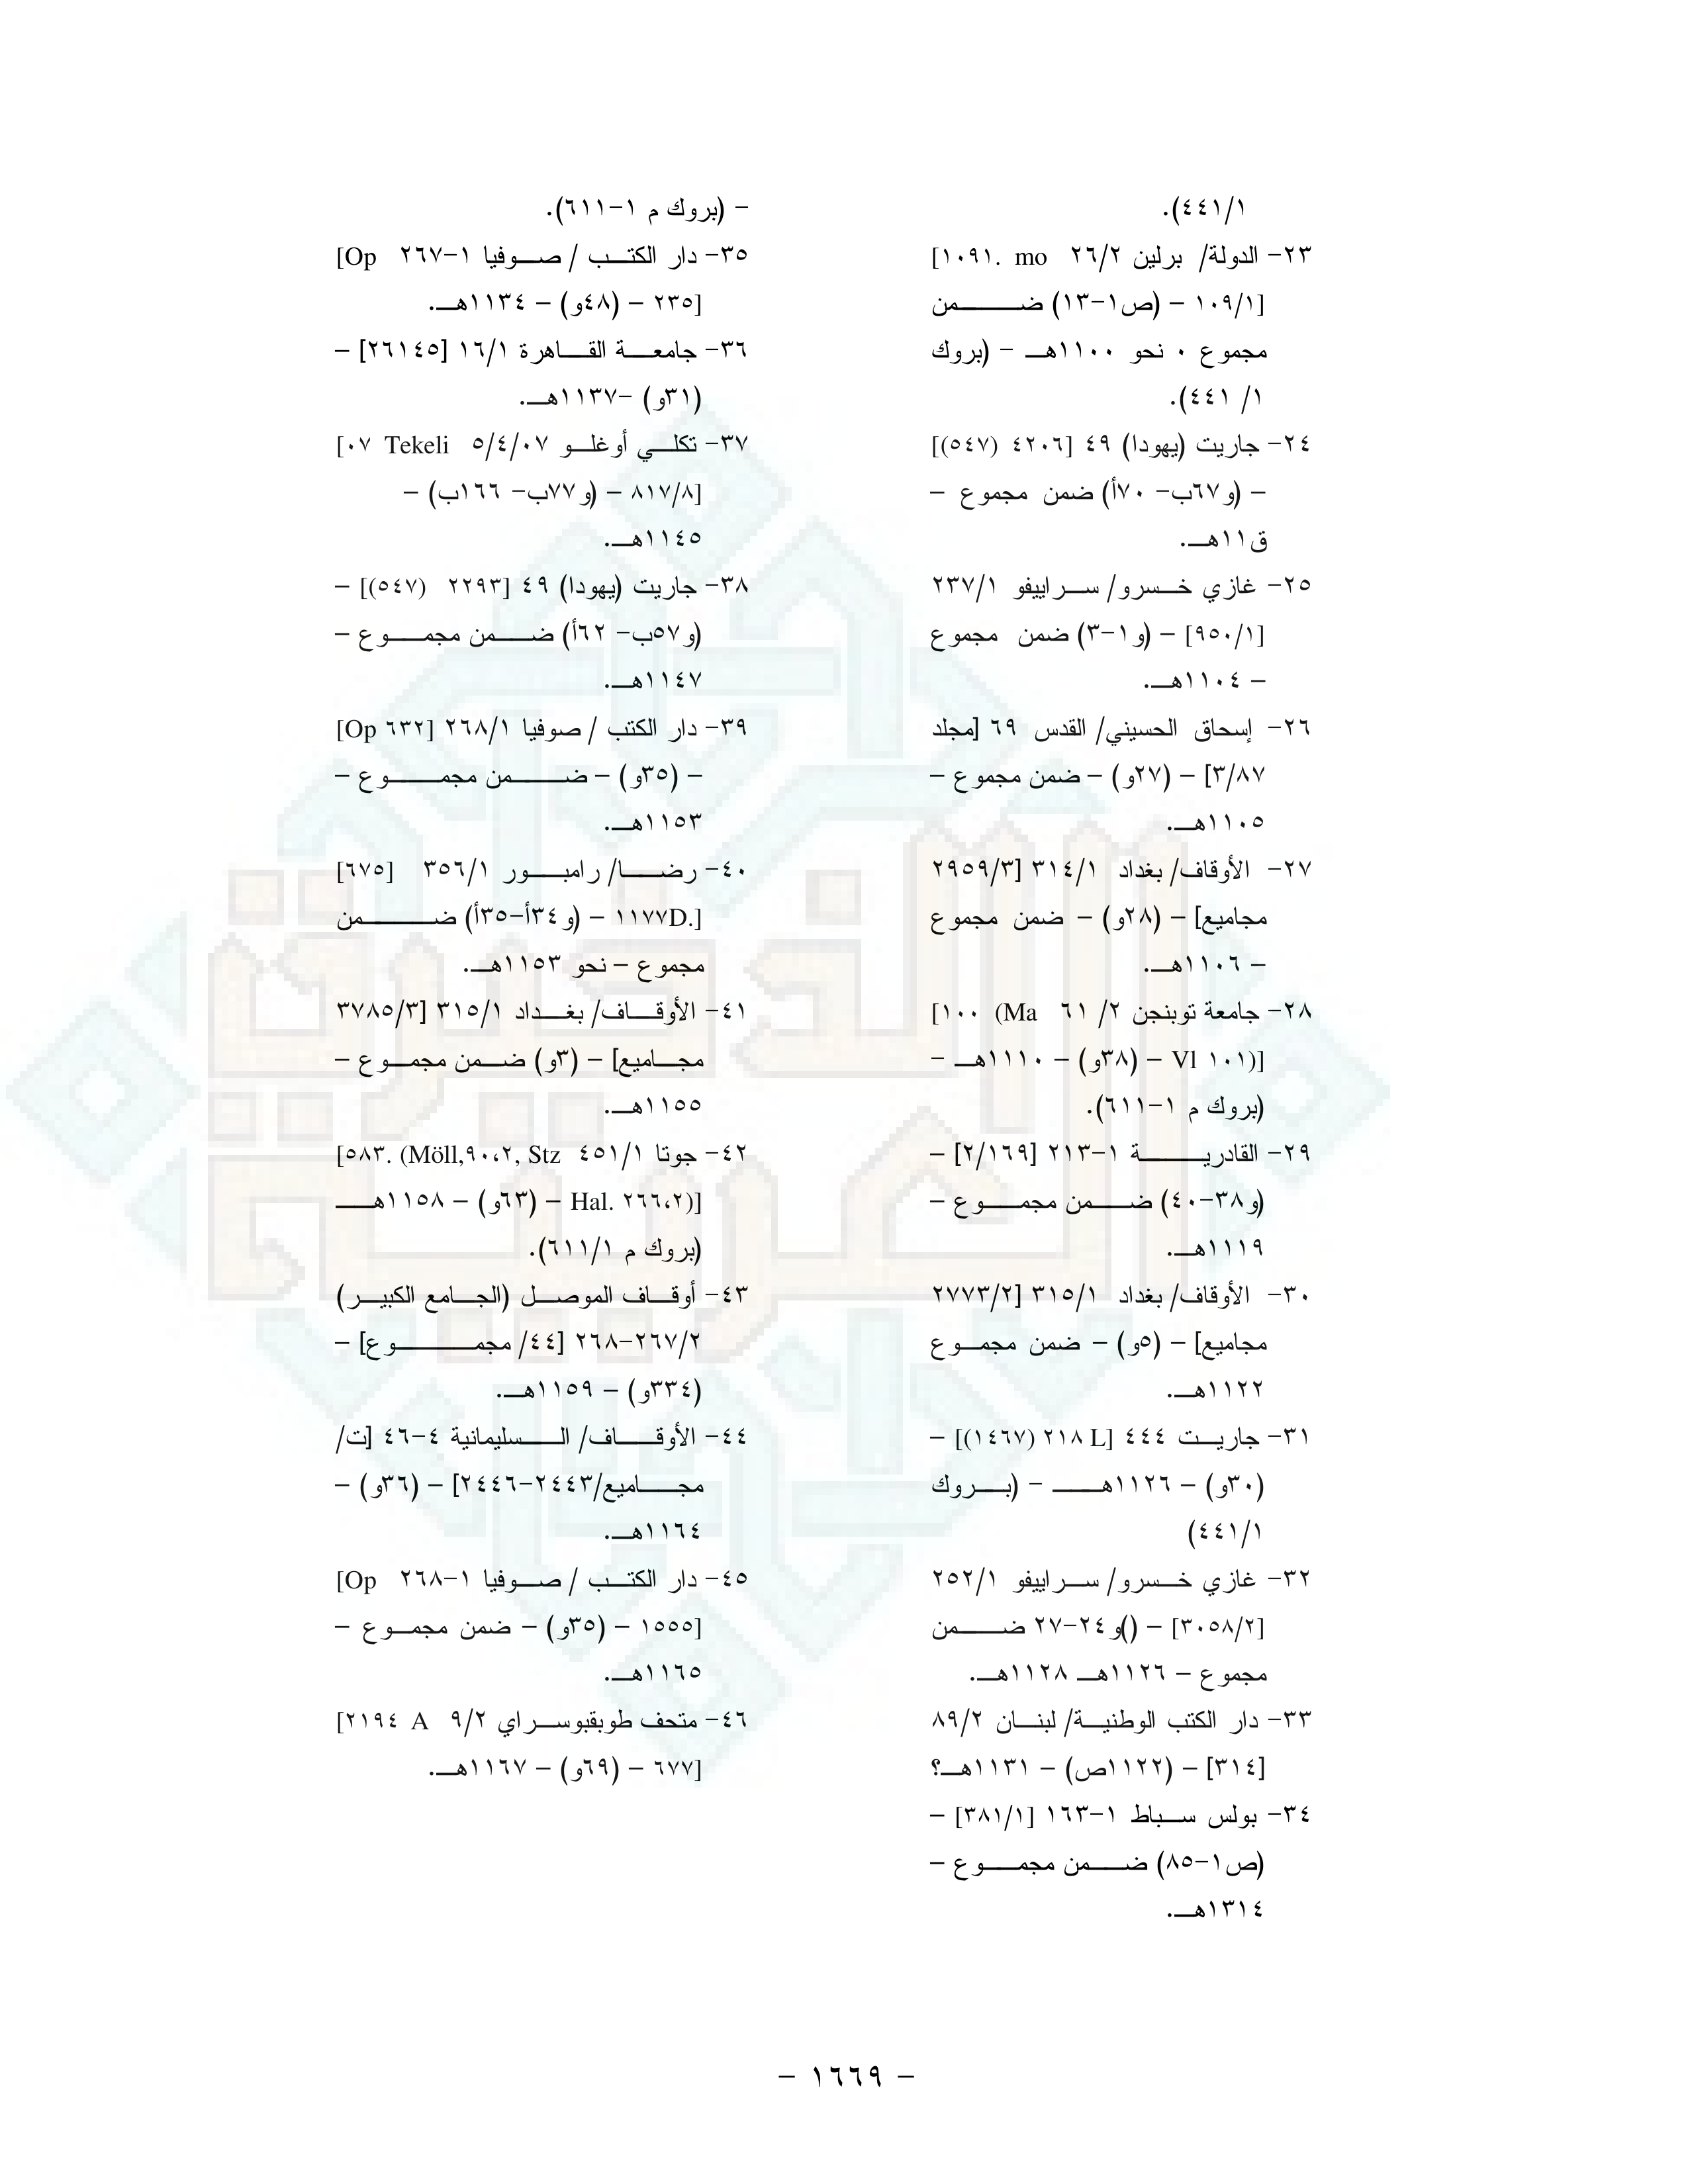 ٤٤١/١).
٢٣- الدولة/ برلين ٢٦/٢ [١٠٩١. mo
١٠٩/١] – (ص١-١٣) ضمن
مجموع ٠ نحو ١١٠٠هـ – (بروك
١/ ٤٤١).
٢٤- جاريت (يهودا) ٤٩ [٤٢٠٦ (٥٤٧)]
– (و٦٧ب- ٧٠أ) ضمن مجموع –
ق١١هـ.
٢٥- غازي خسرو/ سراييفو ٢٣٧/١
[٩٥٠/١] – (و١-٣) ضمن مجموع
– ١١٠٤هـ.
٢٦- إسحاق الحسيني/ القدس ٦٩ [مجلد
٣/٨٧] – (٢٧و) – ضمن مجموع –
١١٠٥هـ.
٢٧- الأوقاف/ بغداد ٣١٤/١ [٢٩٥٩/٣
مجاميع] – (٢٨و) – ضمن مجموع
– ١١٠٦هـ.
٢٨- جامعة توبنجن ٢/ ٦١ [١٠٠ (Ma
Vl ١٠١)] – (٣٨و) – ١١١٠هـ –
(بروك م ١-٦١١).
٢٩- القادرية ١-٢١٣ [٢/١٦٩] –
(و٣٨-٤٠) ضمن مجموع –
١١١٩هـ.
٣٠- الأوقاف/ بغداد ٣١٥/١ [٢٧٧٣/٢
مجاميع] – (٥و) – ضمن مجموع
١١٢٢هـ.
٣١- جاريت ٤٤٤ [٢١٨ L (١٤٦٧)] –
(٣٠و) – ١١٢٦هـ – (بروك
٤٤١/١)
٣٢- غازي خسرو/ سراييفو ٢٥٢/١
[٣٠٥٨/٢] – ()و٢٤-٢٧ ضمن
مجموع – ١١٢٦هـ ١١٢٨هـ.
٣٣- دار الكتب الوطنية/ لبنان ٨٩/٢
[٣١٤] – (١١٢٢ص) – ١١٣١هـ؟
٣٤- بولس سباط ١-١٦٣ [٣٨١/١] –
(ص١-٨٥) ضمن مجموع –
١٣١٤هـ.
– (بروك م ١-٦١١).
٣٥- دار الكتب / صوفيا ١-٢٦٧ [Op
٢٣٥] – (٤٨و) – ١١٣٤هـ.
٣٦- جامعة القاهرة ١٦/١ [٢٦١٤٥] –
(٣١و) –١١٣٧هـ.
٣٧- تكلي أوغلو ٥/٤/٠٧ [٠٧ Tekeli
٨١٧/٨] – (و٧٧ب- ١٦٦ب) –
١١٤٥هـ.
٣٨- جاريت (يهودا) ٤٩ [٢٢٩٣ (٥٤٧)] –
(و٥٧ب- ٦٢أ) ضمن مجموع –
١١٤٧هـ.
٣٩- دار الكتب / صوفيا ٢٦٨/١ [Op ٦٣٢]
– (٣٥و) – ضمن مجموع –
١١٥٣هـ.
٤٠- رضا/ رامبور ٣٥٦/١ [٦٧٥]
[.١١٧٧D – (و٣٤أ-٣٥أ) ضمن
مجموع – نحو ١١٥٣هـ.
٤١- الأوقاف/ بغداد ٣١٥/١ [٣٧٨٥/٣
مجاميع] – (٣و) ضمن مجموع –
١١٥٥هـ.
٤٢- جوتا ٤٥١/١ [٥٨٣. (Möll,٩٠،٢, Stz
Hal. ٢٦٦،٢)] – (٦٣و) – ١١٥٨هـ
(بروك م ٦١١/١).
٤٣- أوقاف الموصل (الجامع الكبير)
٢٦٧/٢-٢٦٨ [٤٤/ مجموع] –
(٣٣٤و) – ١١٥٩هـ.
٤٤- الأوقاف/ السليمانية ٤-٤٦ [ت/
مجاميع/٢٤٤٣-٢٤٤٦] – (٣٦و) –
١١٦٤هـ.
٤٥- دار الكتب / صوفيا ١-٢٦٨ [Op
١٥٥٥] – (٣٥و) – ضمن مجموع –
١١٦٥هـ.
٤٦- متحف طوبقبوسراي ٩/٢ [٢١٩٤ A
٦٧٧] – (٦٩و) – ١١٦٧هـ.
– ١٦٦٩ –
الذخيرة
العربية